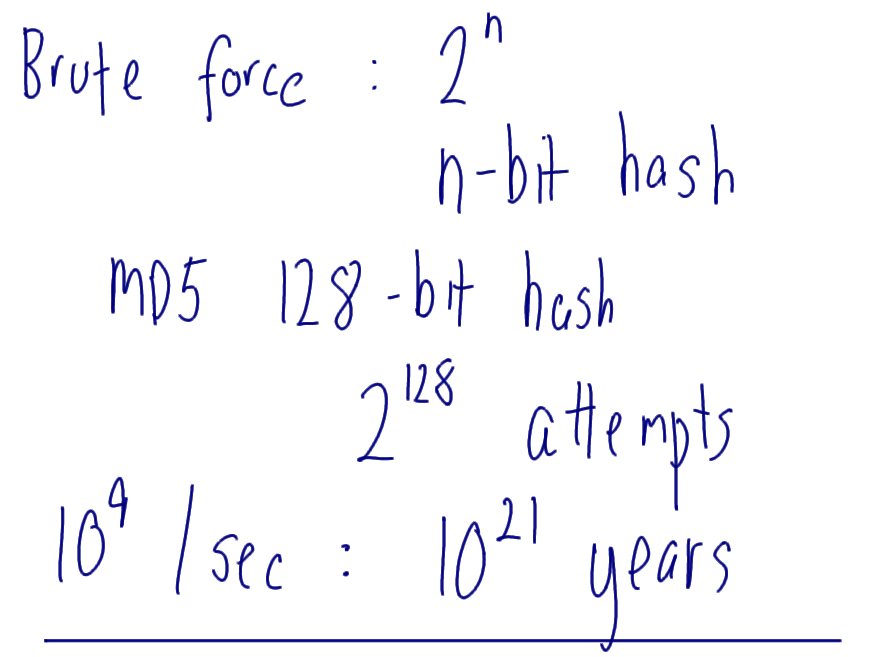 Brute force : 2^n
n-bit hash
MD5 128-bit hash
2^128 attempts
10^9 /sec : 10^21 years